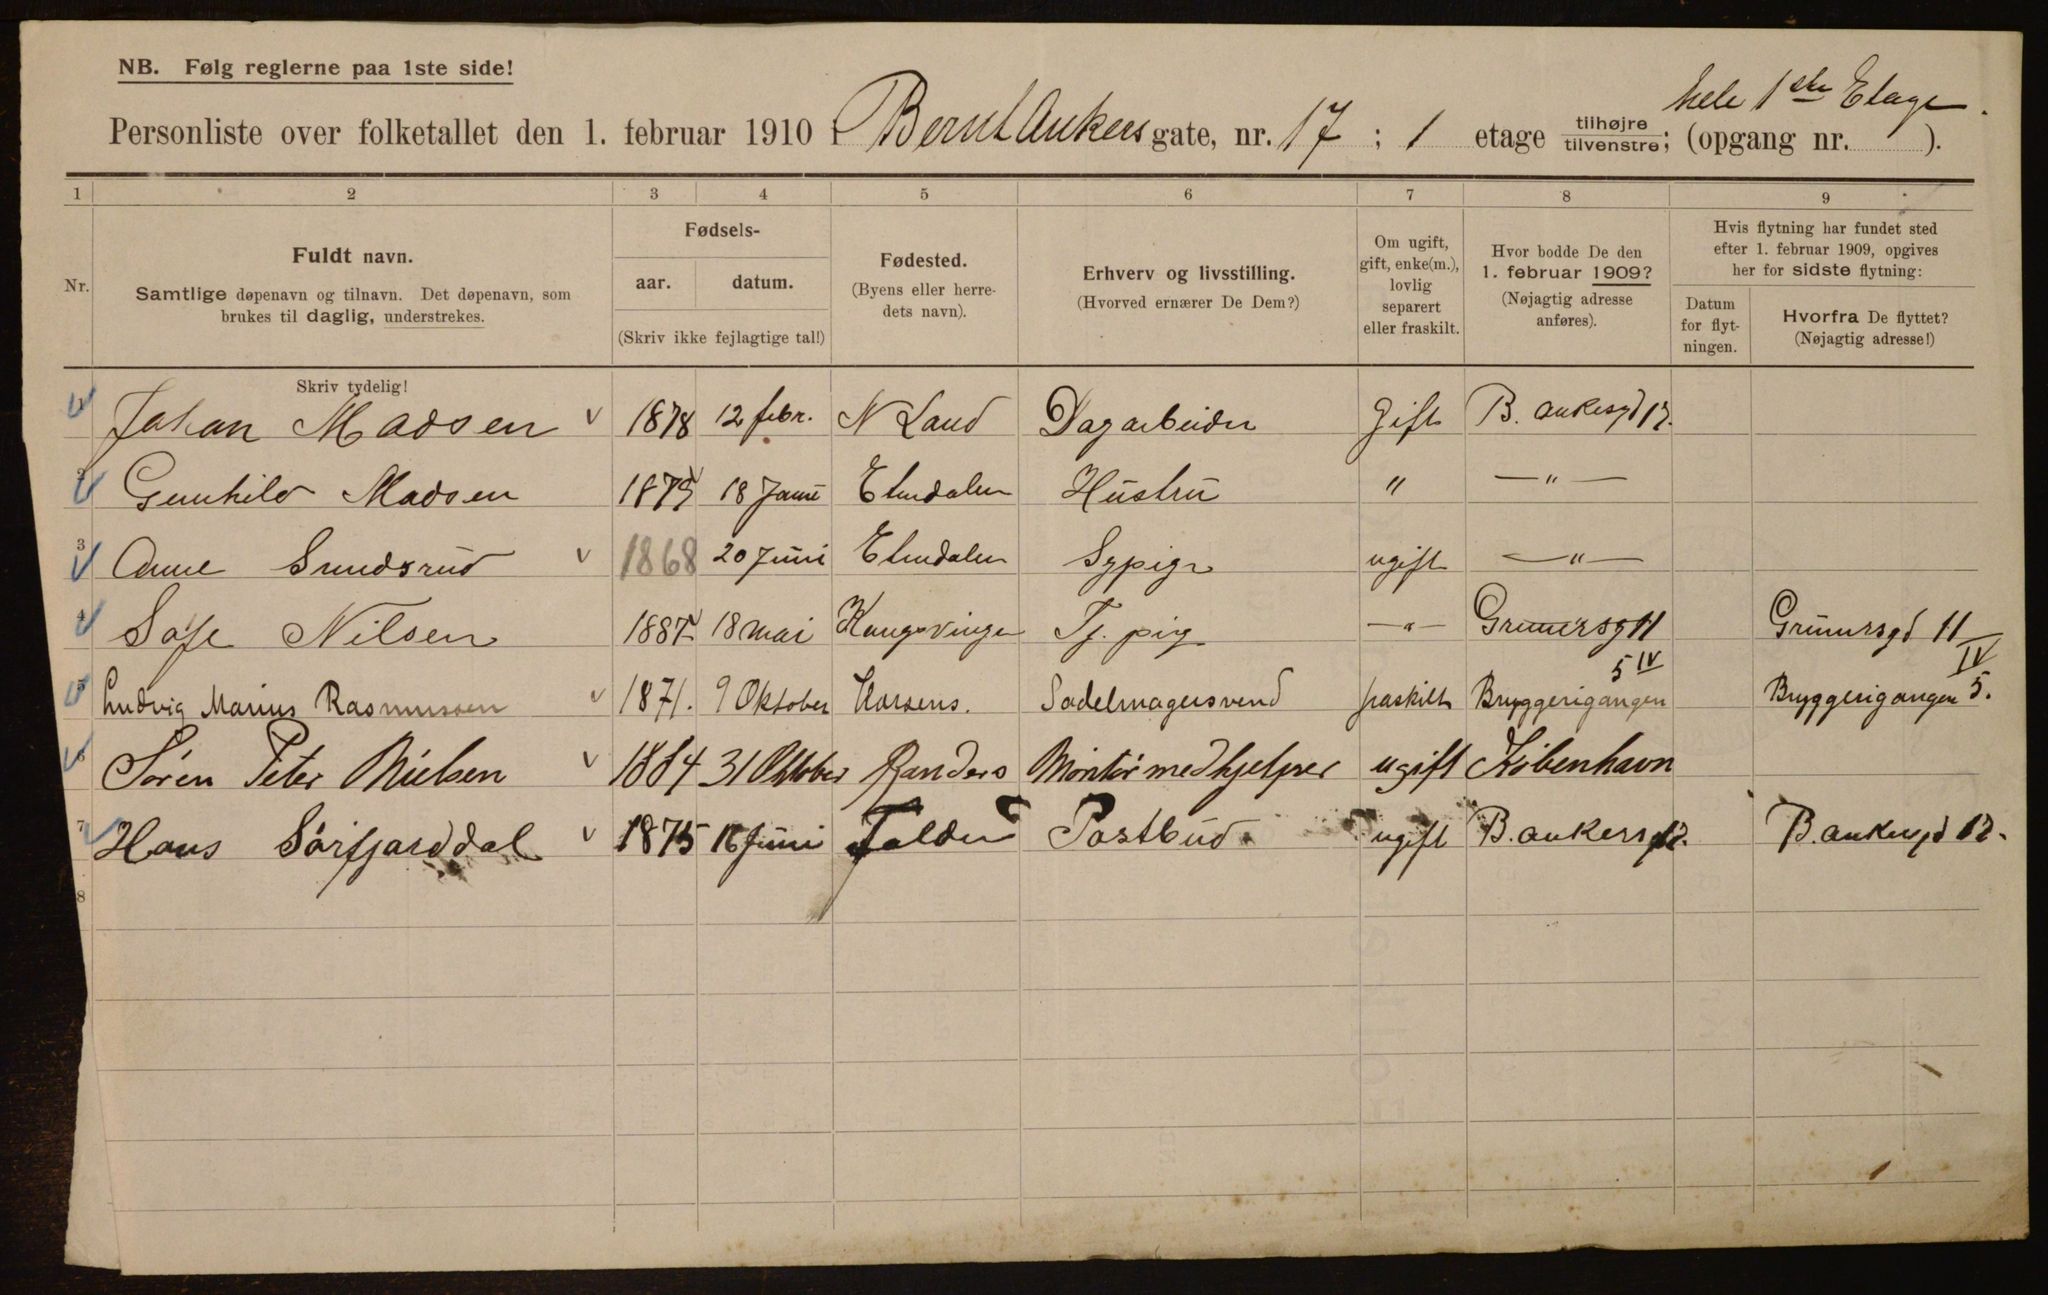 NB. Følg reglerne paa 1ste side!
hele 1ste Etage.
Personliste over folketallet den 1. februar 1910 i Bernt Ankers gate, nr. 17 ; 1 etage tilhøjre/tilvenstre; (opgang nr. ).
1 2 3 4 5 6 7 8 9
Nr.
Fuldt navn.
Samtlige døpenavn og tilnavn. Det døpenavn, som
brukes til daglig, understrekes.
Fødsels-
aar. datum.
(Skriv ikke fejlagtige tal!)
Fødested.
(Byens eller herre-
dets navn).
Erhverv og livsstilling.
(Hvorved ernærer De Dem?)
Om ugift,
gift, enke(m.),
lovlig
separert
eller fraskilt.
Hvor bodde De den
1. februar 1909?
(Nøjagtig adresse
anføres).
Hvis flytning har fundet sted
efter 1. februar 1909, opgives
her for sidste flytning:
Datum
for flyt-
ningen.
Hvorfra De flyttet?
(Nøjagtig adresse!)
Skriv tydelig!
1 Johan Madsen 1878 12 febr. N Land Dagarbeider Gift B. ankersgd 17.
2 Gunhild Madsen 1875 18 Etnedalen Hustru " —"—
3 Anne Sundsrud 1868 20 Juni Etnedalen Sypige ugift —"—
4 Sofe Nilsen 1887 18 mai Kongsvinger Tj. pig —"— Grunersg 11 Grunersgd 11
5 Ludvig Marius Rasmussen 1871. 9 Oktober Horsens. Sadelmagersvend fraskilt Bryggerigangen 5 IV Bryggerigangen 5. IV
6 Søren Peter Nielsen 1884 31 Oktober Randers Montørmedhjelper ugift København
7 Hans Sörfjorddal 1875 16 Juni Folden Postbud. ugift B. ankersg 17. B. ankersgd 17.
8